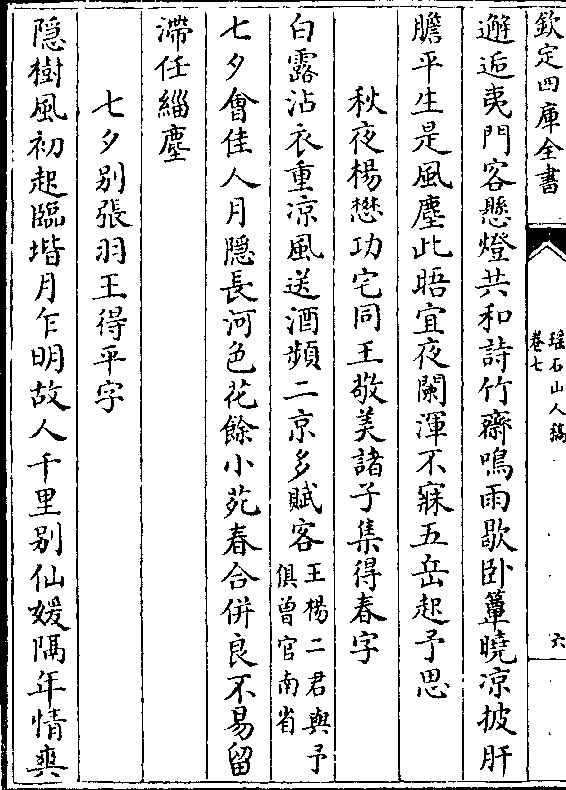 欽定四庫全書
瑤石山人稿
卷七
六
邂逅夷門客懸燈共和詩竹齋鳴雨歇卧簟曉凉披肝
膽平生是風塵此晤宜夜闌渾不寐五岳起予思
秋夜楊懋功宅同王敬美諸子集得春字
白露沾衣重凉風送酒頻二京多賦客王楊二君與予
俱曾官南省
七夕會佳人月隱長河色花餘小苑春合併良不易留
滯任緇塵
七夕别張羽王得平字
隠樹風初起臨堦月乍明故人千里别仙媛隔年情與